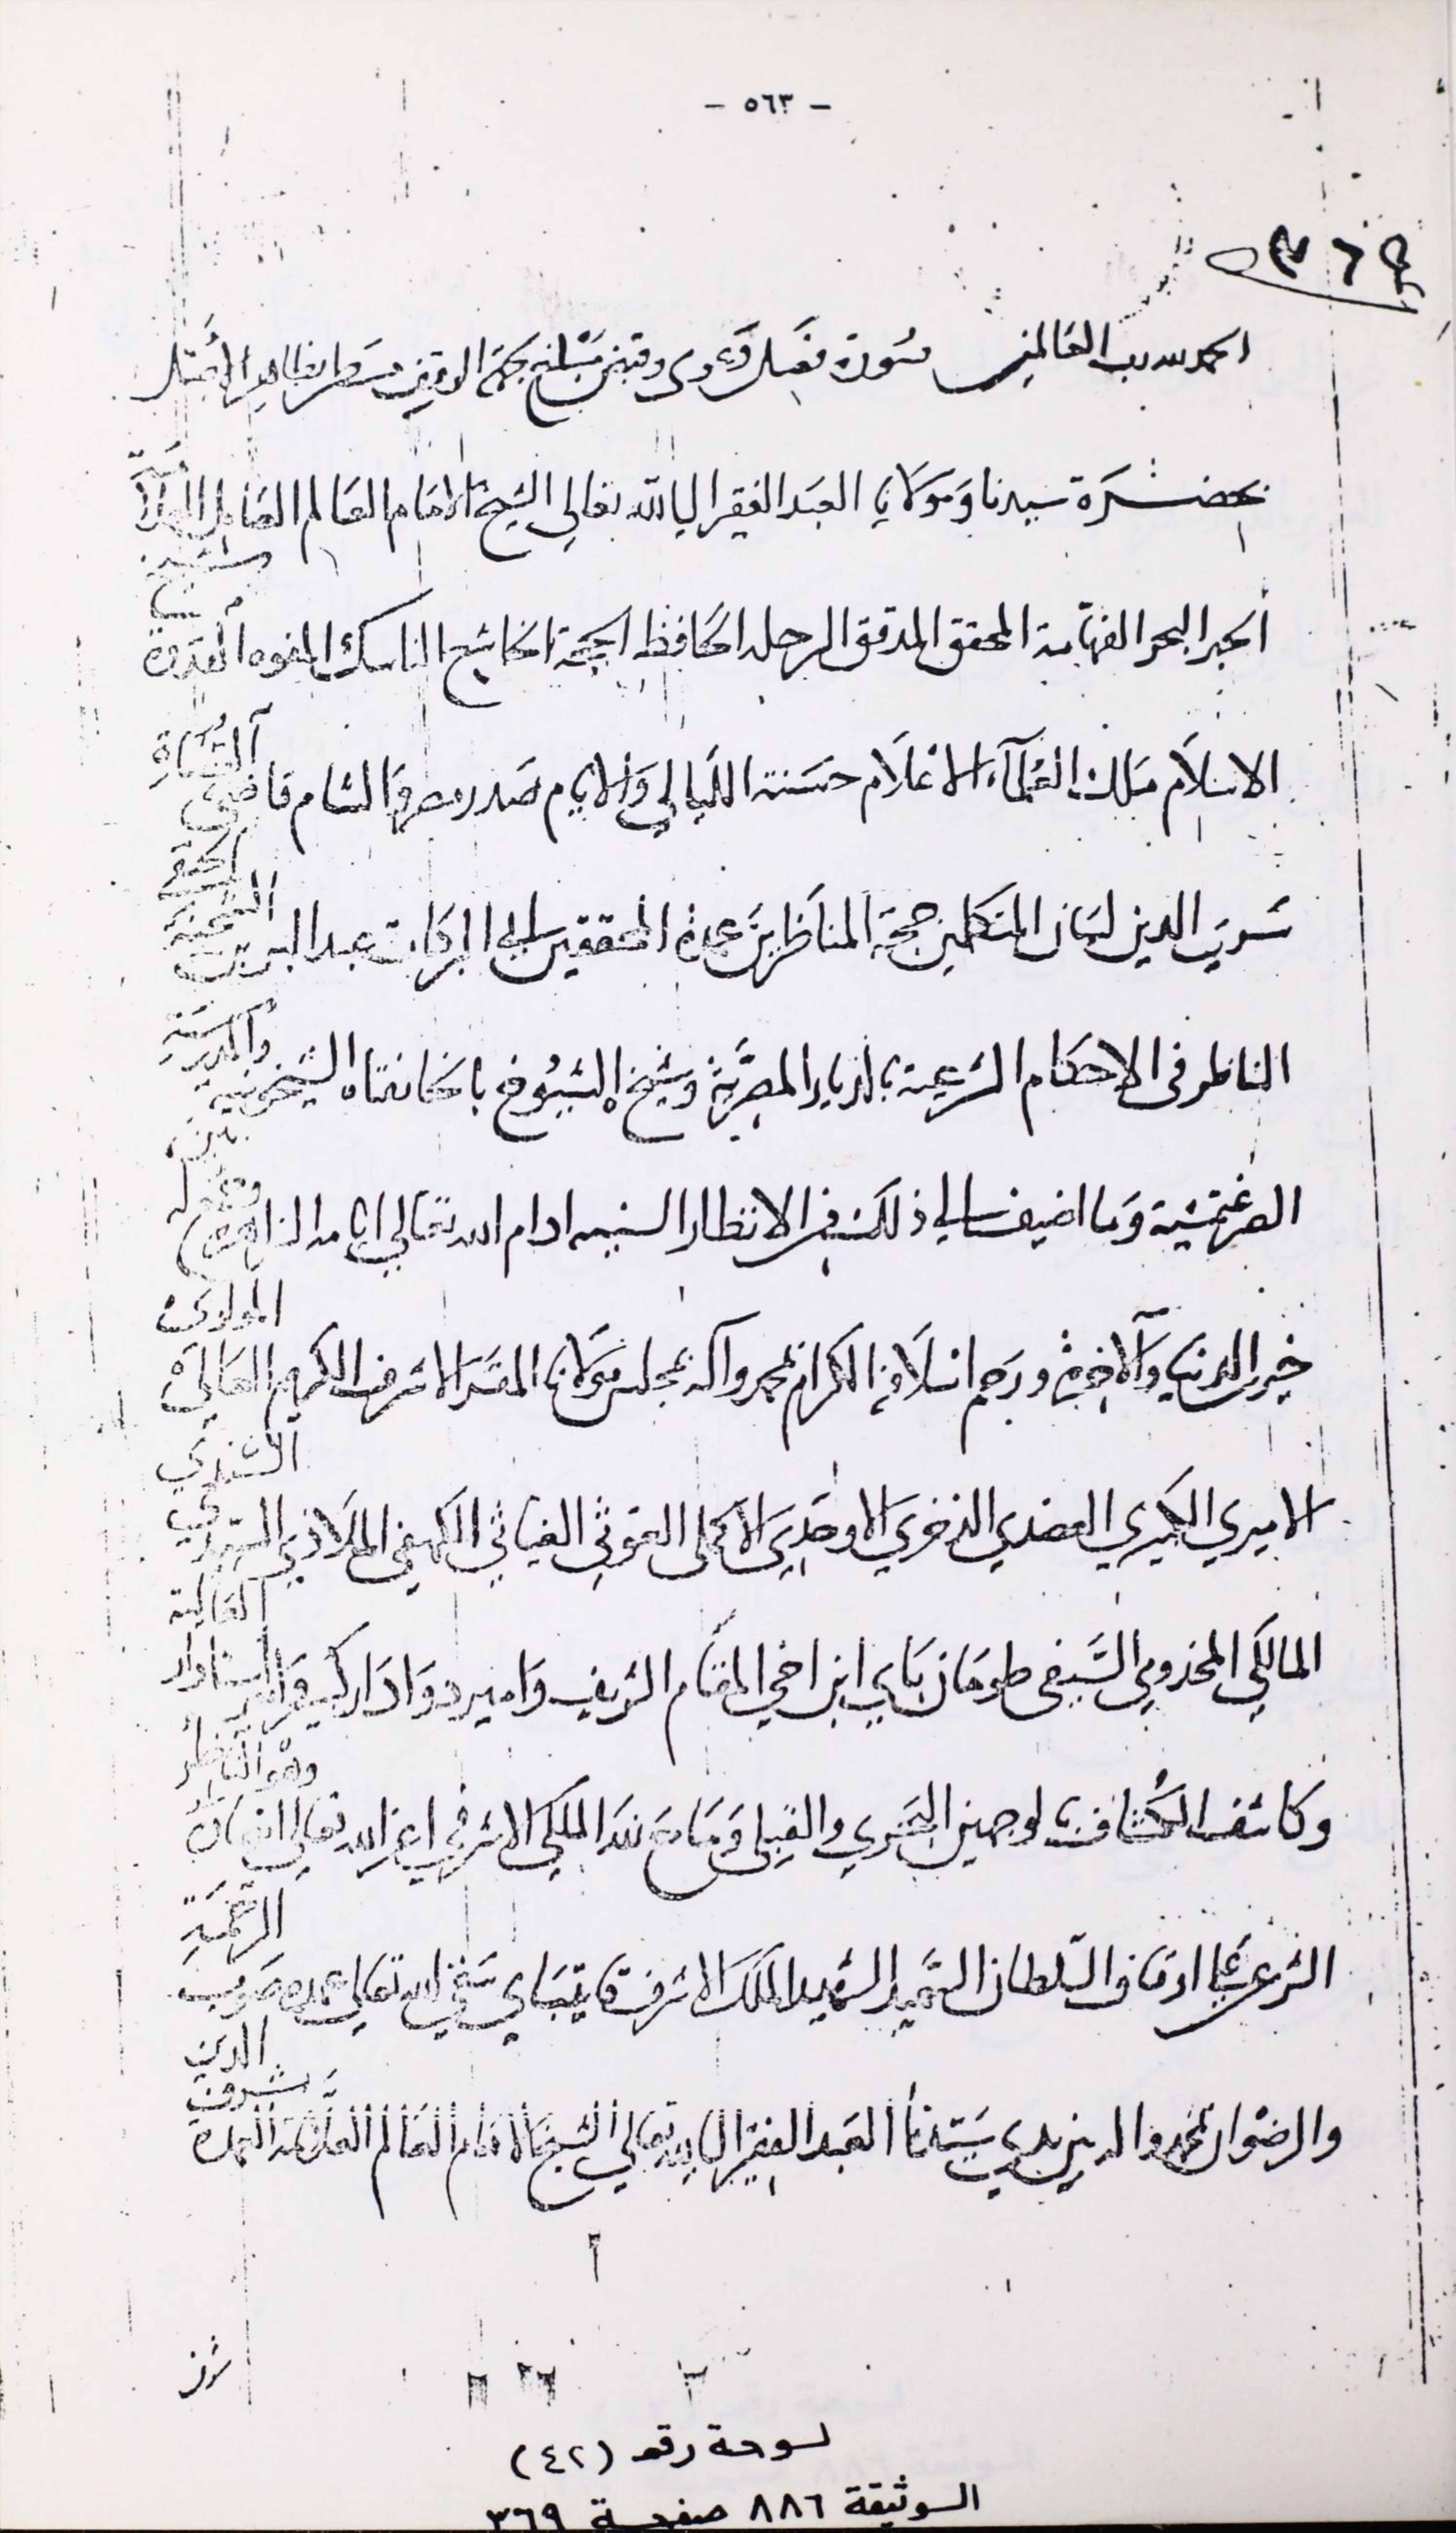 - ٥٦٣ -
٣٦٩
الحمد لله رب العالمين صورة فصل دعوى وقتين بحكم مسطر بظاهر
بحضرة سيدنا ومولانا العبد الفقير الى الله تعالى الشيخ الامام العالم العامل العلامة
الحبر البحر الفهامة المحقق المدقق الرحلة الحافظ الحجة الخاشع الناسك المفوه القدوة شيخ
الاسلام ملك العلماء الاعلام حسنة الليالي والايام صدر مصر والشام قاضي القضاة
سري الدين لسان المتكلمين حجة المناظرين عمدة المحققين ابي البركات عبد البر بن الشحنة الحنفي
الناظر في الاحكام الشرعية بالديار المصرية وشيخ الشيوخ بالخانقاه الشيخونية والمدرسة
الصرغتمشية وما اضيف الى ذلك من الانظار السنية ادام الله تعالى ايامه الزاهرة
خيري الدنيا والآخرة ورحم اسلافه الكرام بمحمد وآله بمجلس مولانا المقر الاشرف الكريم العالي المولوي
الاميري الكبيري العضدي الذخري الاوحدي الاكملي الغوثي الغياثي الكهفي الملاذي السندي
المالكي المخدومي السيفي طومان باي ابن اخي المقام الشريف وامير دوادار كبير وامير استادار العالية
وكاشف الكشاف بالوجهين البحري والقبلي وما مع ذلك الملكي الاشرفي اعز الله تعالى انصاره وهو الناظر
الشرعي على اوقاف السلطان السعيد الشهيد الملك الاشرف قايتباي سقى الله تعالى عهده صوب الرحمة
والرضوان بمحمد وآله بين يدي سيدنا العبد الفقير الى الله تعالى الشيخ الامام العالم العلامة العمدة شرف الدين
شرف
لوحة رقم (٤٢)
الوثيقة ٨٨٦ صفحة ٣٦٩